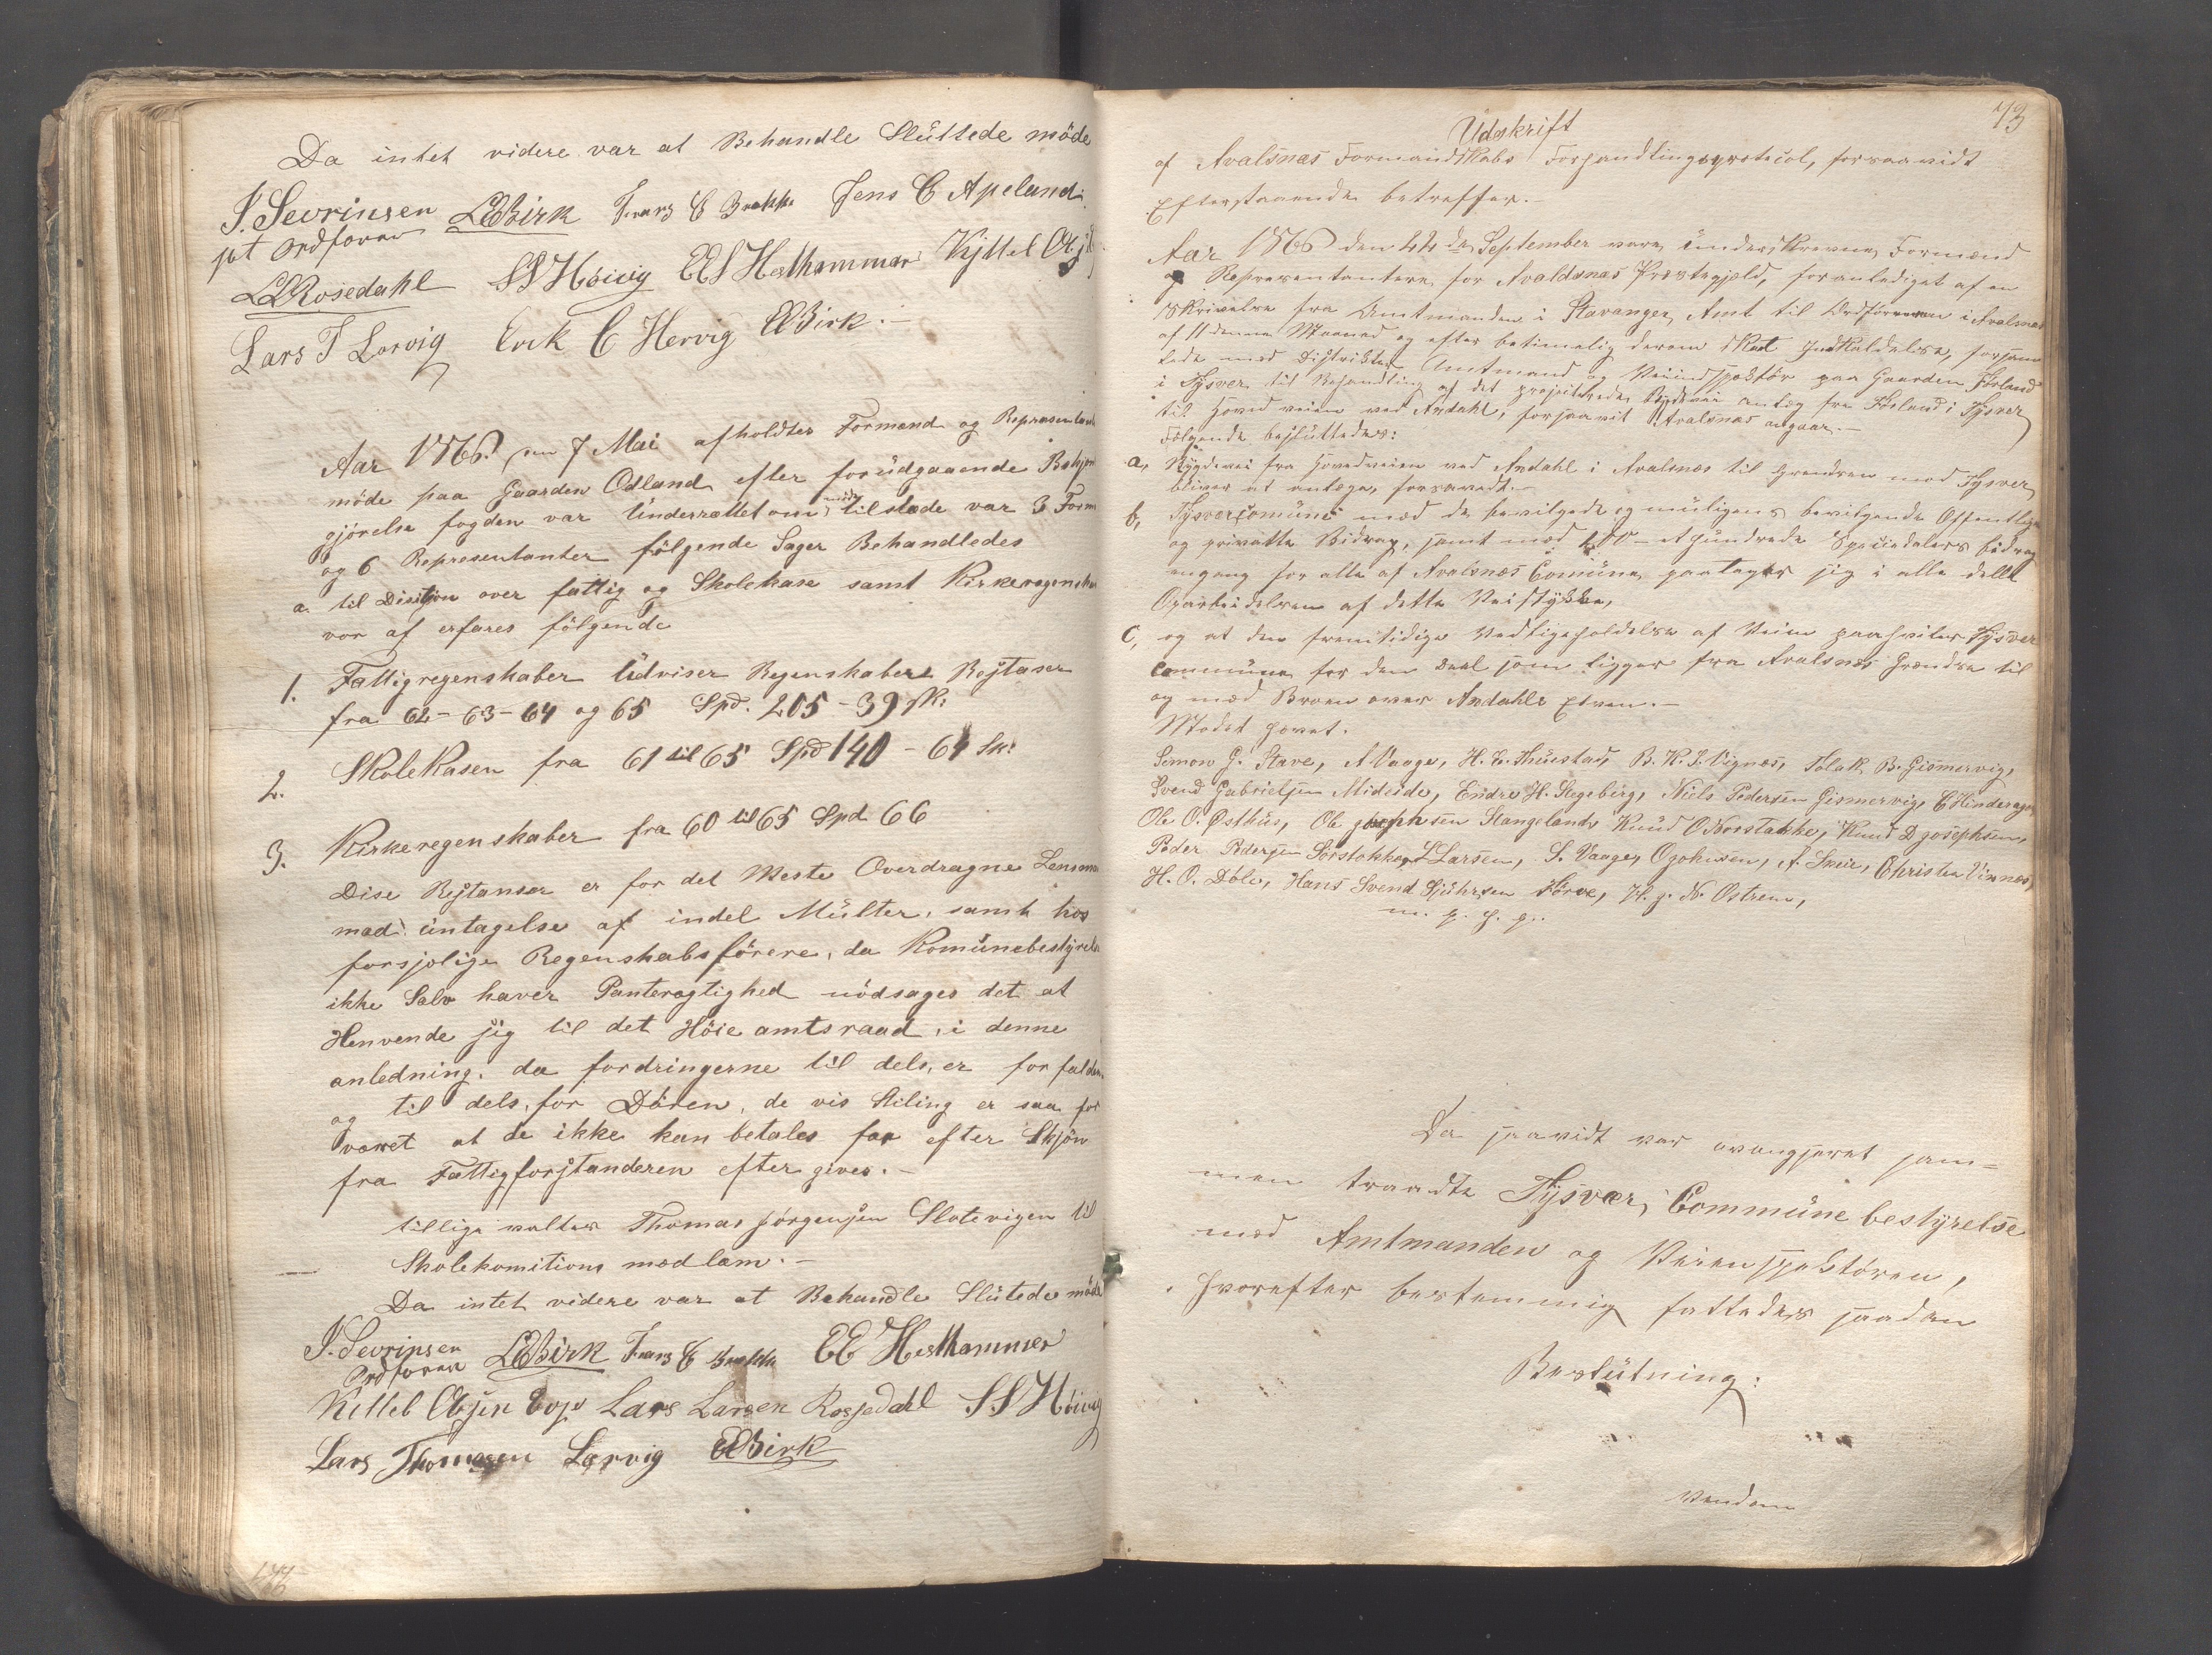 Da intet videre var at Behandle Sluttede möde
S. Sevrinsen LEBirk Frans E Brekke Jens C Apeland
pt ordförer
LLRosedahl SSHöivig EES Hesthammer Kjittel
Lars T Lervig Erik C Hervig EBirk.–
Aar 1866. den 7 Mai afholdtes Formend og Repræsentant
möde paa Gaarden Odland efter forüdgaaende Bekjen
gjörelse fogden var ünderrættet om möde tilstæde var 3 Form
og 6 Representanter fölgende Sager Behandledes
a. til Disitjon over fattig og Skolekase samt Kirkeregenska
vor af erfares fölgende
1. Fattigregenskaber üdviser Regenskabers Restaser
fra 62 - 63 - 64 og 65 Spd. 205 - 39 sk.
2. SkoleKasen fra 61 til 65 Spd 140 - 64 Sk:
3. Kirkeregenskaber fra 60 til 65 Spd. 66
Dise Restanser er for det Meste Overdragne Lensman
mad üntagelse af indel Mülter, samt hos
forsjolige Regenskabsförere, da Komünebestyrels
ikke Selv haver Panteragtighed nödsages det at
Henvende sig til det Höie amtsraad, i denne
anledning. da fordringerne til dels, er forfalden
og til dels, for Döden, de vis Stiling er saa for
varet at de ikke kan betales faa efter Skjön
fra Fattigforstanderen efter gives.–
tillige valtes Thomas Jörgensen Slotevigen til
Skolekomitions medlam.–
Da intet videre var at Behandle Slütede möde
S. Sevrinsen LEBirk Frans E Brekke EE Hesthammer
Ordförer
Kittel Lars Larsen Rossjedahl S.S Höivig
Lars Thomasen Lervig EBirk
73
Udskrift
af Avalsnæs Formandskabs Forhandlingsprotocol, forsaavidt
Efterstaaende betreffer.–
Aar 1866 den 22de September vare ünderskrevne Formænd
og Representantere for Avaldsnæs Præstegjeld, foranlediget af en
Skrivelse fra Amtmanden i Stavanger Amt til Ordföreren i Avalsnæs
af 11 denne Maaned og efter betimelig derom skeet Indkaldelse, forsam
lede med Distriktets Amtmand og Veiindspektör paa Gaarden Förland
i Tysver til Behandling af det projecterede Bygdevei anlæg fra Förland i Tysver
til Hovedveien ved Andahl, forsaavit Avalsnæs angaar.–
Fölgende besluttedes:
a, Bygdevei fra Hovedveien ved Andahl i Avalsnæs til Grændsen mod Tysver
bliver at anlæge, forsavidt.–
b, Tysvær Comüne med de bevilgede og müligens bevilgende Offentlige
og privatte Bidrag, samt med 100 – et Hundrede Speciedalers bidrag
engang for alle af Avalsnæs Comüne paatager sig i alle delle
Oparbeidelsen af dette Veistykke,
c, og at den fremtidige Vedligeholdelse af Veien paahviler Tysver
Commüne for den Deel som ligger fra Avalsnæs Grændse til
og med Broen over Andahls Elven.–
Mödet hævet.
Simon G. Stave, A Vaage, H. E. Thuestad, B. K. S. Vignæs, Folak B. Gismervig,
Svend Gabrielsen Mideide, Endre H. Stegeberg, Niels Pedersen Gismervig, C Hinderager
Ole O. Østhüs, Ole Josephsen Stangeland, Knüd O Norstokke, Knud D Josephsen,
Peder Pedersen Sørstokke, L Larsen, S. Vaage, O Johnsen, A. Smie, Christen Vinnæs,
H. O. Döle, Hans Svend Sjührsen Förre, H. J. N. Østrem,
Da saavidt var avangjeret sam=
men traadte Tysvær, Commüne bestyrelse
med Amtmanden og Veiinspektören,
hvorefter bestemmig fattedes saadan
Beslütning:
Vendom